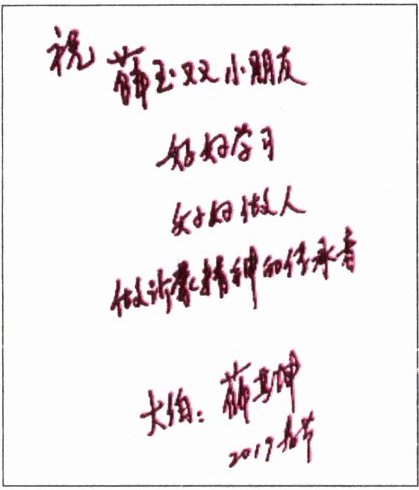 祝 薛玉双小朋友
好好学习
好好做人
做沂蒙精神的传承者
大伯：薛其坤
2019春节